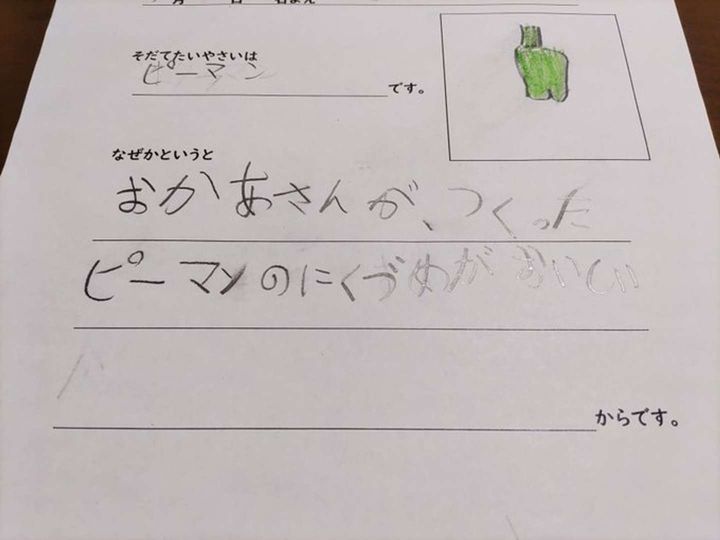 そだてたいやさいは
ピーマン
です。
なぜかというと
おかあさんが、つくった
ピーマンのにくづめがおいしい
からです。